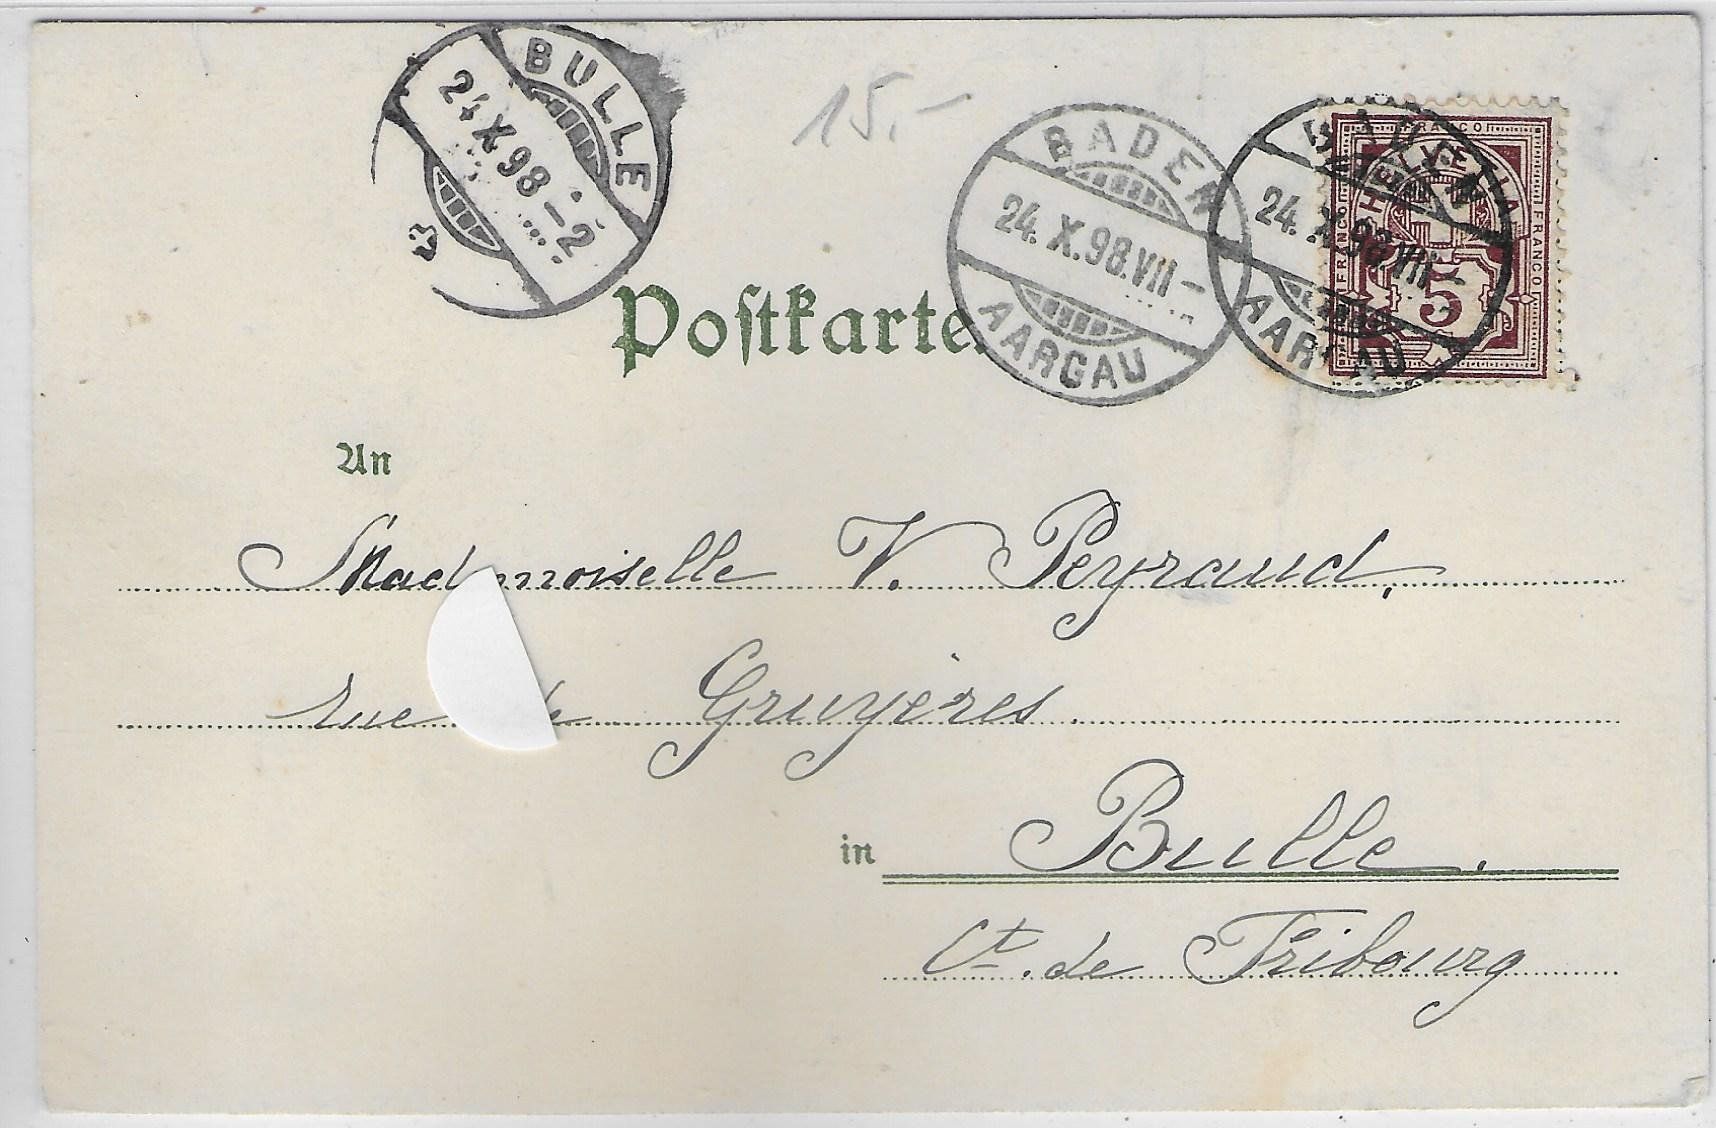 BULLE
24.X.98.-2
15.-
BADEN
24.X.98.VII-
AARGAU
BADEN
24.X.98.VII-
AARGAU
FRANCO
HELVETIA
FRANCO
FRANCO
5
Postkarte.
An
Mademoiselle V. Peyraud,
rue de Gruyères.
in Bulle.
Ct. de Fribourg